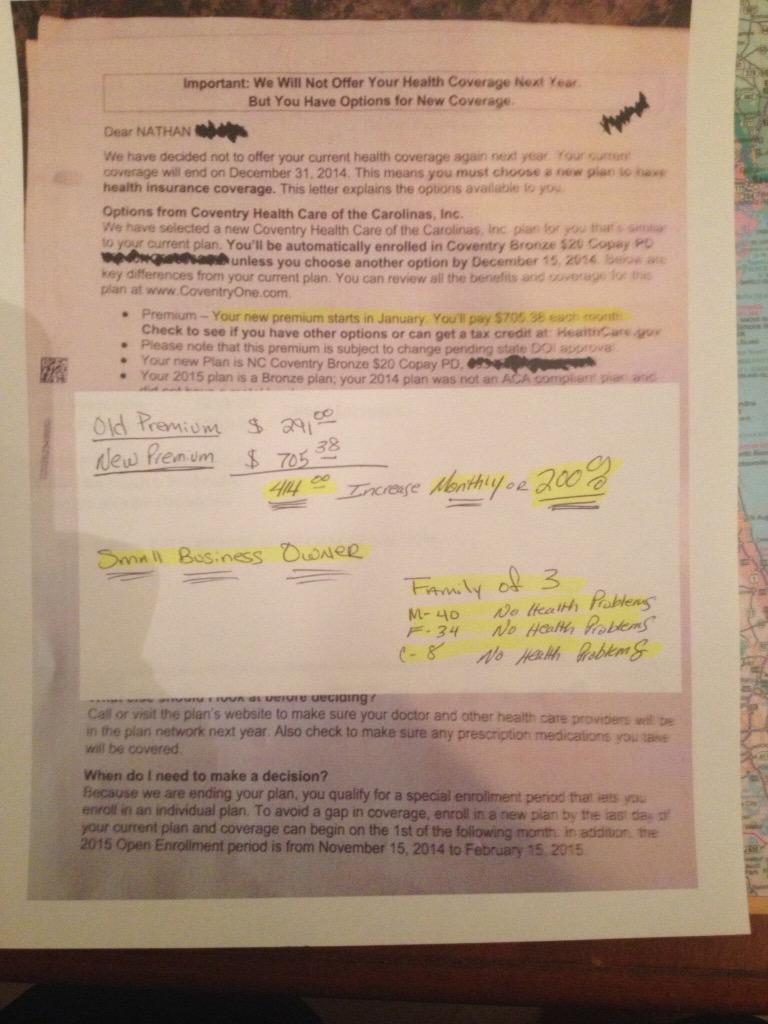 Important: We Will Not Offer Your Health Coverage Next Year.
But You Have Options for New Coverage.
Dear NATHAN
We have decided not to offer your current health coverage again next year. Your current
coverage will end on December 31, 2014. This means you must choose a new plan to have
health insurance coverage. This letter explains the options available to you.
Options from Coventry Health Care of the Carolinas, Inc.
We have selected a new Coventry Health Care of the Carolinas, Inc. plan for you that's similar
to your current plan. You'll be automatically enrolled in Coventry Bronze $20 Copay PD
unless you choose another option by December 15, 2014. Below are
key differences from your current plan. You can review all the benefits and coverage for this
plan at www.CoventryOne.com.
• Premium – Your new premium starts in January. You'll pay $705.38 each month.
Check to see if you have other options or can get a tax credit at: HealthCare.gov
• Please note that this premium is subject to change pending state DOI approval
• Your new Plan is NC Coventry Bronze $20 Copay PD,
• Your 2015 plan is a Bronze plan; your 2014 plan was not an ACA compliant plan and
Old Premium $ 291.00
New Premium $ 705.38
414.00 Increase Monthly or 200%
Small Business Owner
Family of 3
M-40 No Health Problems
F-34 No Health Problems
C-8 No Health Problems
What else should I look at before deciding?
Call or visit the plan's website to make sure your doctor and other health care providers will be
in the plan network next year. Also check to make sure any prescription medications you take
will be covered.
When do I need to make a decision?
Because we are ending your plan, you qualify for a special enrollment period that lets you
enroll in an individual plan. To avoid a gap in coverage, enroll in a new plan by the last day of
your current plan and coverage can begin on the 1st of the following month. In addition, the
2015 Open Enrollment period is from November 15, 2014 to February 15, 2015.